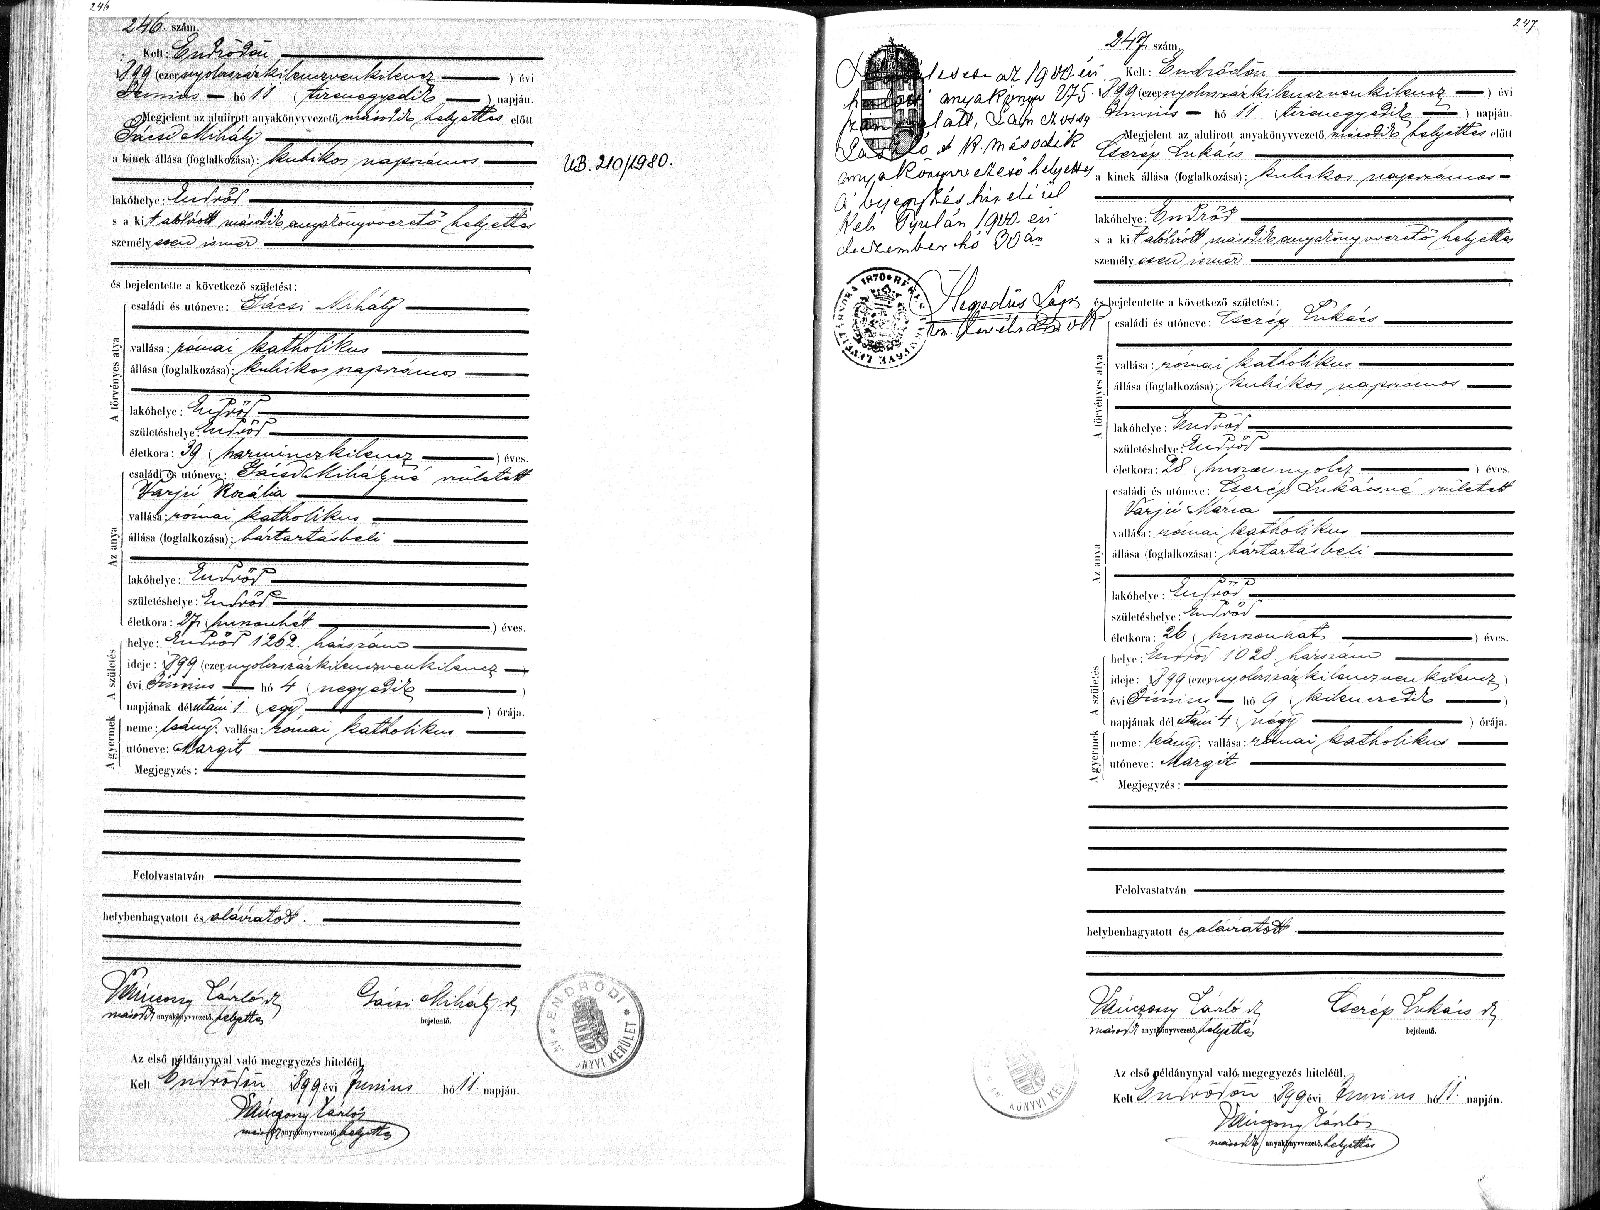 246
246. szám.
Kelt: Endrődön
899 (ezernyolcszázkilenczvenkilencz) évi
Június hó 11 (tizenegyedik) napján.
Megjelent az alulirott anyakönyvvezető második helyettes előtt
Gácsi Mihály
a kinek állása (foglalkozása): kubikos napszámos
lakóhelye: Endrőd
s a kit alólirott második anyakönyvvezető helyettes
személyesen ismer
és bejelentette a következő születést:
A törvényes atya
családi és utóneve: Gácsi Mihály
vallása: római katholikus
állása (foglalkozása): kubikos napszámos
lakóhelye: Endrőd
születéshelye: Endrőd
életkora: 39 (harminczkilencz) éves.
Az anya
családi és utóneve: Gácsi Mihályné született
Varjú Rozália
vallása: római katholikus
állása (foglalkozása): háztartásbeli
lakóhelye: Endrőd
születéshelye: Endrőd
életkora: 27 (huszonhét) éves.
A születés
helye: Endrőd 1262. házszám
ideje: 899 (ezernyolcszázkilenczvenkilencz
évi Június hó 4 (negyedik)
napjának délutáni 1 (egy) órája.
A gyermek
neme: leány; vallása: római katholikus
utóneve: Margit
Megjegyzés:
Felolvastatván
helybenhagyatott és aláiratott.
László
második anyakönyvvezető helyettes
Gácsi Mihály
bejelentő.
Az első példánynyal való megegyezés hiteléül.
Kelt Endrődön 899 évi Június hó 11. napján.
László
második anyakönyvvezető helyettes
ENDRŐDI ANYAKÖNYVI KERÜLET
UB. 210/1980.
247
az 1900 évi
anyakönyv 275.
szám alatt,
László k. második
anyakönyvvezető helyettes
bejegyzés hiteléül
Kelt Gyulán 1900. évi
deczember hó 30án
Hegedűs
1876
247 szám.
Kelt: Endrődön
899 (ezernyolcszázkilenczvenkilencz) évi
Június hó 11 (tizenegyedik) napján.
Megjelent az alulirott anyakönyvvezető második helyettes előtt
Cserép Lukács
a kinek állása (foglalkozása): kubikos napszámos
lakóhelye: Endrőd
s a kit alólirott második anyakönyvvezető helyettes
személyesen ismer
és bejelentette a következő születést:
A törvényes atya
családi és utóneve: Cserép Lukács
vallása: római katholikus
állása (foglalkozása): kubikos napszámos
lakóhelye: Endrőd
születéshelye: Endrőd
életkora: 28 (huszonnyolcz) éves.
Az anya
családi és utóneve: Cserép Lukácsné született
Varjú Mária
vallása: római katholikus
állása (foglalkozása): háztartásbeli
lakóhelye: Endrőd
születéshelye: Endrőd
életkora: 26 (huszonhat) éves.
A születés
helye: Endrőd 1028 házszám
ideje: 899 (ezernyolcszázkilenczvenkilencz)
évi Június hó 9 (kilenczedik)
napjának délutáni 4 (négy) órája.
A gyermek
neme: leány; vallása: római katholikus
utóneve: Margit
Megjegyzés:
Felolvastatván
helybenhagyatott és aláiratott
László
második anyakönyvvezető helyettes
Cserép Lukács
bejelentő.
Az első példánynyal való megegyezés hiteléül.
Kelt Endrődön 899 évi Június hó 11. napján.
László
második anyakönyvvezető helyettes